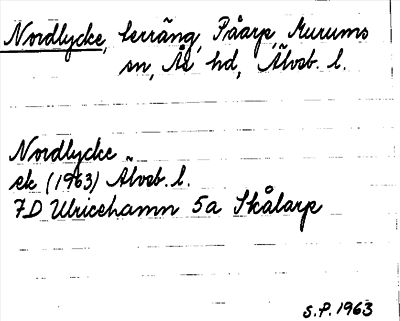 Nordlycke, terräng, Påarp, Murums
sn, Ås hd, Älvsb. l.
Nordlycke
ek (1963) Älvsb. l.
7D Ulricehamn 5a Skålarp
S.P. 1963